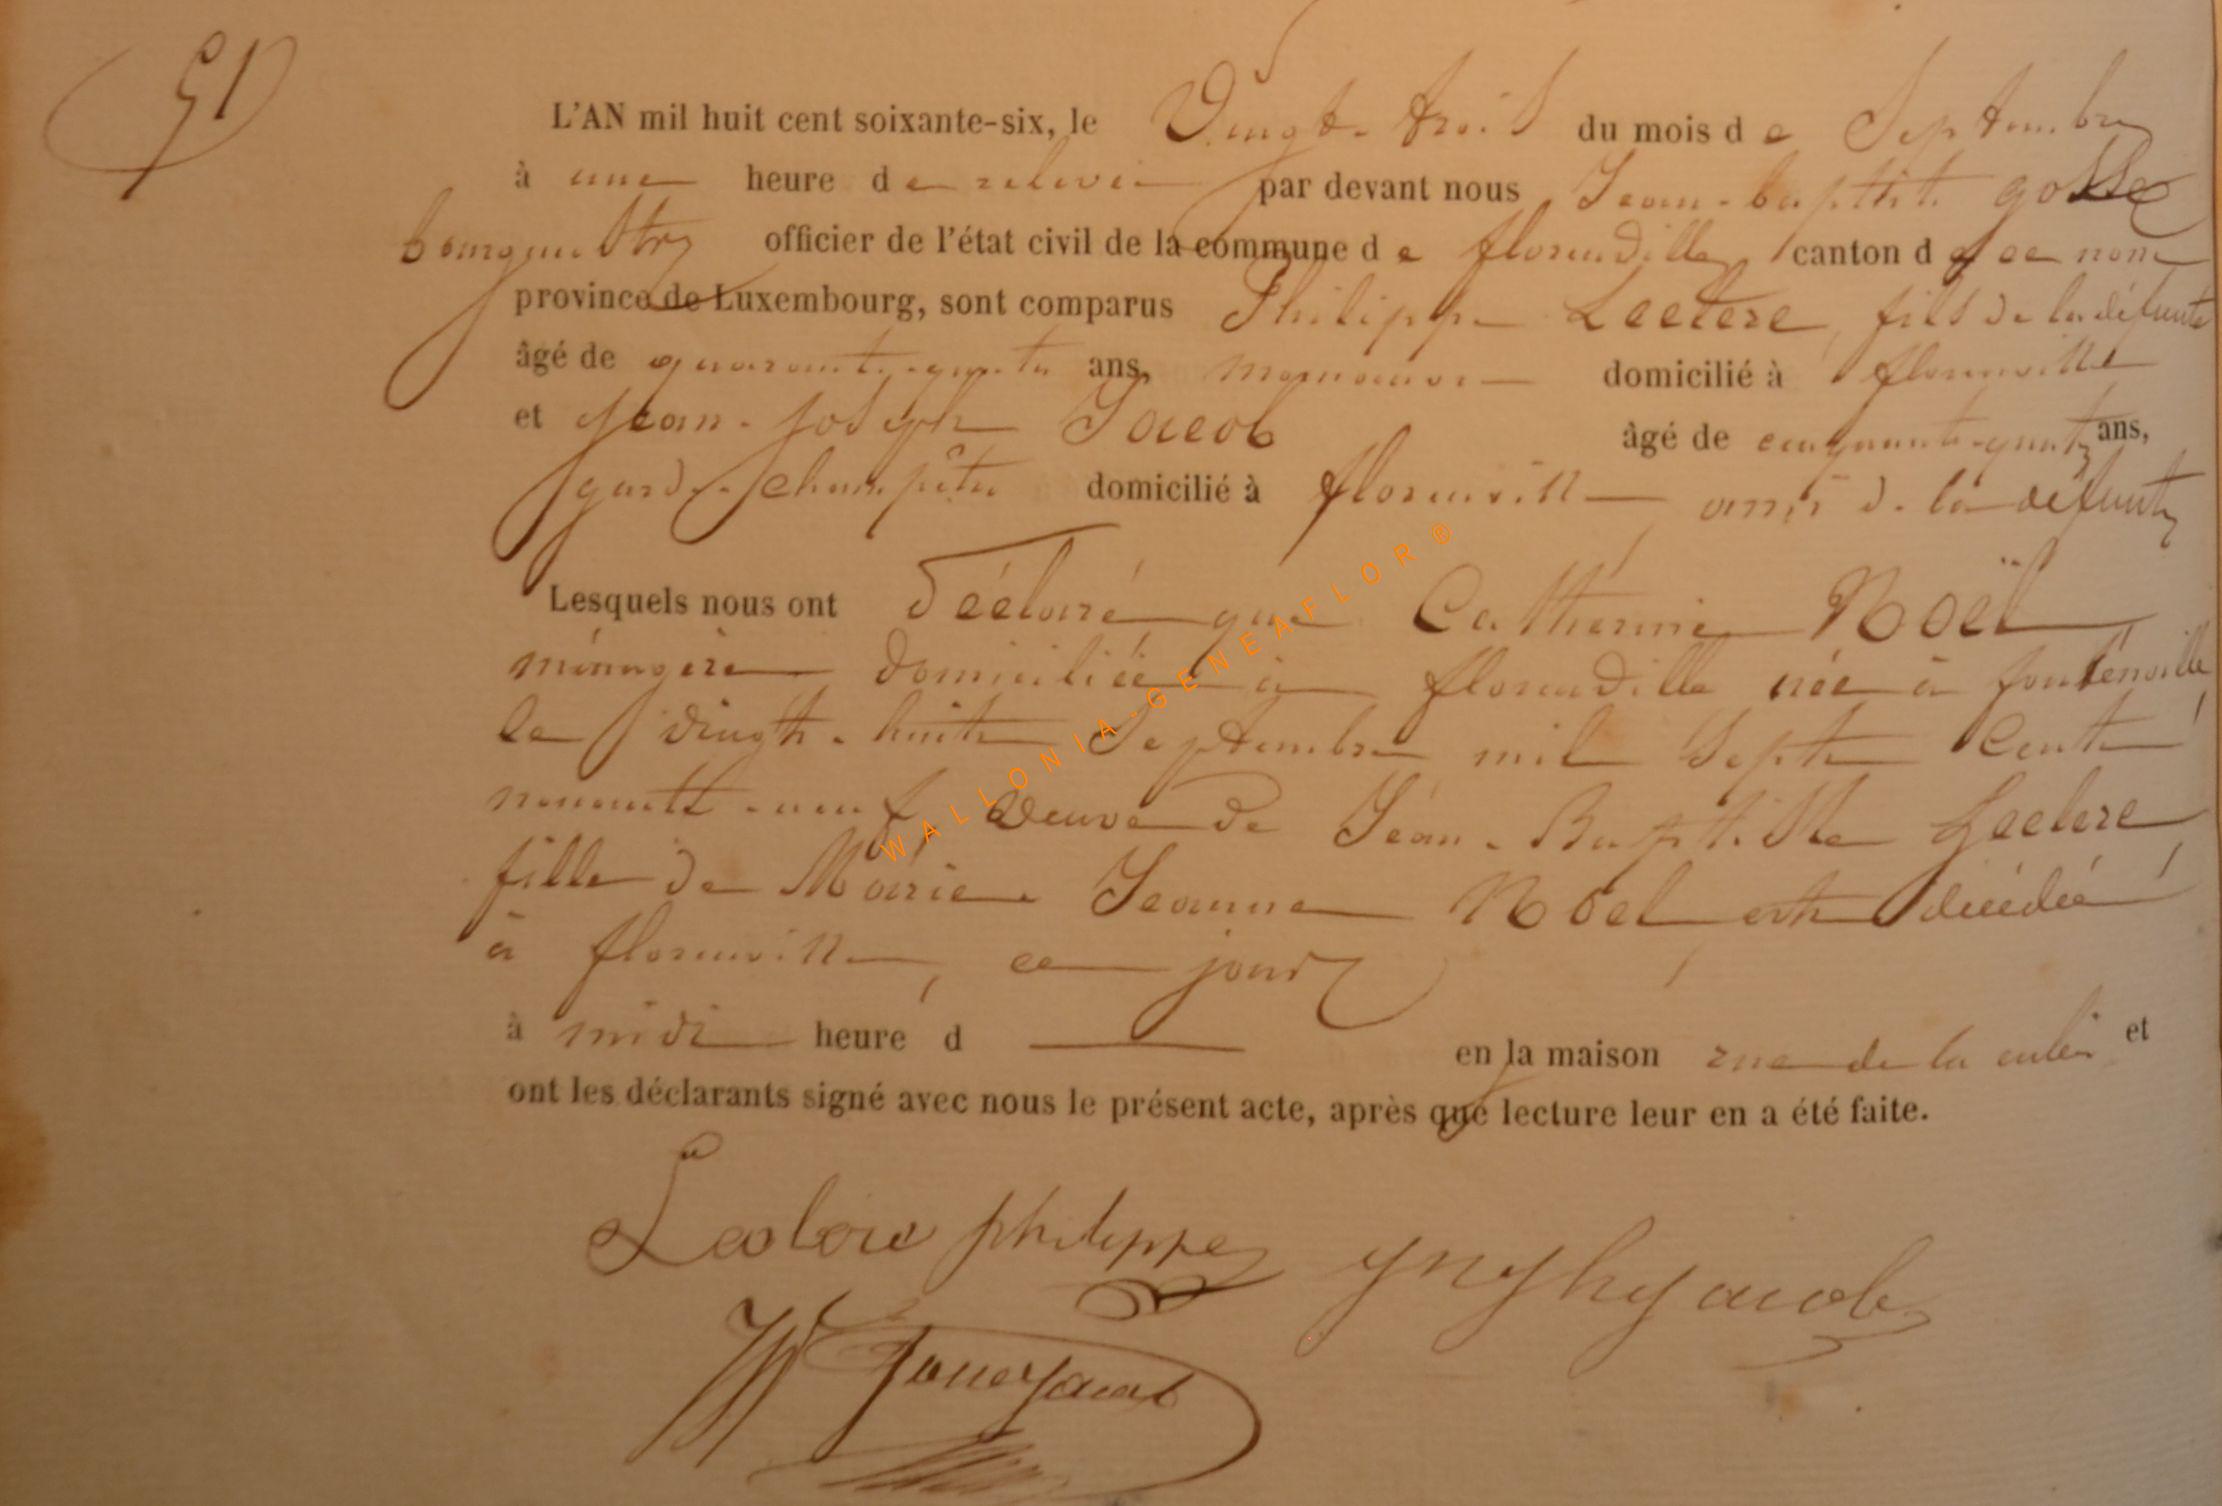 51
L'AN mil huit cent soixante-six, le Vingt-trois du mois de Septembre
à une heure de relevée par devant nous Jean-baptiste gosse
bourgmestre officier de l'état civil de la commune de florenville canton de ce nom
province de Luxembourg, sont comparus Philippe Leclere, fils de la défunte
âgé de quarante-quatre ans, manoeuvre domicilié à florenville
et Jean-Joseph Jacob âgé de cinquante-quatre ans,
garde-champêtre domicilié à florenville ami de la défunte
Lesquels nous ont déclaré que Catherine Noël
ménagère domiciliée à florenville née à fontenoille
le vingt-huit Septembre mil Sept Cent
nonante-neuf, Veuve de Jean-Baptiste Leclere
fille de Marie Jeanne Noël est décédée
à florenville, ce jour
à midi heure d en la maison rue de la et
ont les déclarants signé avec nous le présent acte, après que lecture leur en a été faite.
Leclere philippe jacob
WALLONIA-GENEAFLOR®